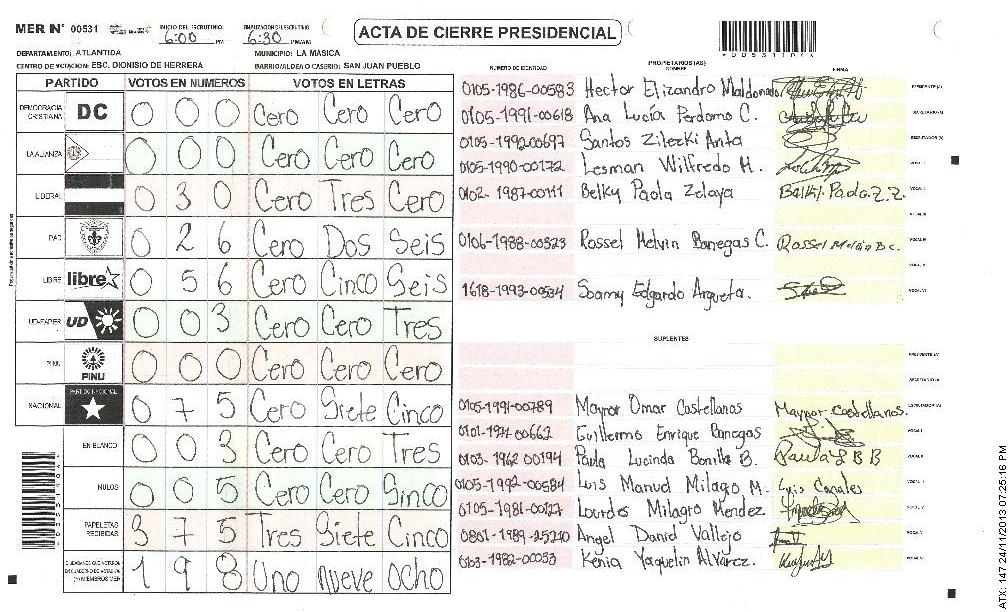 MER N° 00531
INICIO DEL ESCRUTINIO 6:00 PM
FINALIZACION DEL ESCRUTINIO 6:30 PM/AM
ACTA DE CIERRE PRESIDENCIAL
DEPARTAMENTO: ATLANTIDA MUNICIPIO: LA MASICA
CENTRO DE VOTACION: ESC. DIONISIO DE HERRERA BARRIO/ALDEA O CASERIO: SAN JUAN PUEBLO
PARTIDO VOTOS EN NUMEROS VOTOS EN LETRAS
DEMOCRACIA CRISTIANA DC 0 0 0 Cero Cero Cero
LA ALIANZA 0 0 0 Cero Cero Cero
LIBERAL 0 3 0 Cero Tres Cero
PAC 0 2 6 Cero Dos Seis
LIBRE libre 0 5 6 Cero Cinco Seis
UD-FAPER UD 0 0 3 Cero Cero Tres
PINU PINU 0 0 0 Cero Cero Cero
NACIONAL PARTIDO NACIONAL 0 7 5 Cero Siete Cinco
EN BLANCO 0 0 3 Cero Cero Tres
NULOS 0 0 5 Cero Cero Sinco
PAPELETAS RECIBIDAS 3 7 5 Tres Siete Cinco
1 9 8 Uno nueve ocho
NUMERO DE IDENTIDAD PROPIETARIOS (AS) NOMBRE FIRMA
0105-1986-00583 Hector Elizandro Maldonado PRESIDENTE (A)
0105-1991-00618 Ana Lucía Perdomo C. SECRETARIO (A)
0105-1992-00697 Santos Zilezki Anta ESCRUTADOR (A)
0105-1990-00172 Lesman Wilfredo M. VOCAL I
0102-1987-00111 Belky Paola Zelaya Belky Paola Z.Z. VOCAL II
VOCAL III
0106-1988-00323 Rossel Melvin Banegas C. Rossel Melvin B C. VOCAL IV
VOCAL V
1618-1993-00534 Soamy Edgardo Argueta. VOCAL VI
SUPLENTES
PRESIDENTE (A)
SECRETARIO (A)
0105-1991-00789 Maynor Omar Castellanos Maynor Castellanos. ESCRUTADOR (A)
Guillermo Enrique Banegas VOCAL I
0103-1962-00194 Paula Lucinda Bonilla B. Paula L B B VOCAL II
0105-1992-00584 Luis Manuel Milago M. Luis Canales
0105-1981-00127 Lourdes Milagro Mendez
0801-1989-25210 Angel Daniel Vallejo
0103-1982-00053 Kenia Yaquelin Alvarez.
ATX: 147 24/11/2013 07:25:16 PM